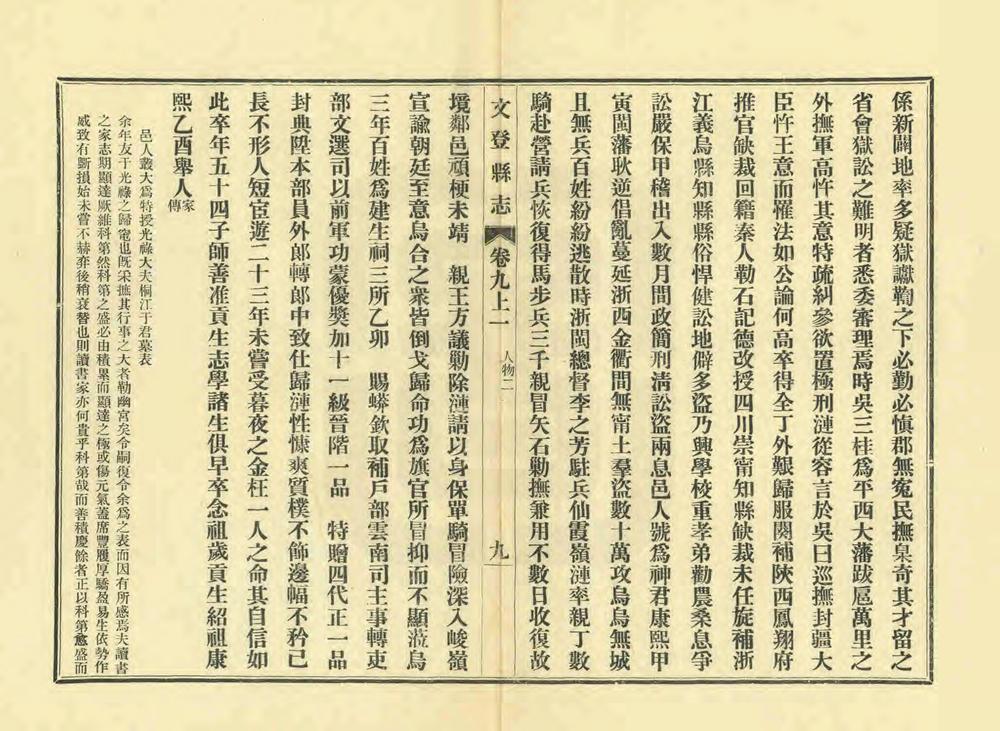 係新闢地率多疑獄讞鞫之下必勤必慎郡無冤民撫臬奇其才留之
省會獄訟之難明者悉委審理焉時吳三桂爲平西大藩跋扈萬里之
外撫軍高忤其意特疏糾參欲置極刑漣從容言於吳曰巡撫封疆大
臣忤王意而罹法如公論何高卒得全丁外艱歸服闋補陝西鳳翔府
推官缺裁回籍秦人勒石記德改授四川崇甯知縣缺裁未任旋補浙
江義烏縣知縣縣俗悍健訟地僻多盜乃興學校重孝弟勸農桑息爭
訟嚴保甲稽出入數月間政簡刑清訟盜兩息邑人號爲神君康熙甲
寅閩藩耿逆倡亂蔓延浙西金衢間無甯土羣盜數十萬攻烏烏無城
且無兵百姓紛紛逃散時浙閩總督李之芳駐兵仙霞嶺漣率親丁數
騎赴營請兵恢復得馬步兵三千親冒矢石勦撫兼用不數日收復故
文登縣志
卷九上一
人物二
九
境鄰邑頑梗未靖 親王方議勦除漣請以身保單騎冒險深入峻嶺
宣諭朝廷至意烏合之衆皆倒戈歸命功爲旗官所冒抑而不顯蒞烏
三年百姓爲建生祠三所乙卯 賜蟒欽取補戶部雲南司主事轉吏
部文選司以前軍功蒙優獎加十一級晉階一品 特贈四代正一品
封典陞本部員外郎轉郎中致仕歸漣性慷爽質樸不飾邊幅不矜己
長不形人短宦遊二十三年未嘗受暮夜之金枉一人之命其自信如
此卒年五十四子師善准貢生志學諸生俱早卒念祖歲貢生紹祖康
熙乙酉舉人家傳
邑人叢大爲特授光祿大夫桐江于君墓表
余年友于光祿之歸窀也旣采摭其行事之大者勒幽宮矣令嗣復令余爲之表而因有所感焉夫讀書
之家志期顯達厥維科第然科第之盛必由積累而顯達之極或傷元氣蓋席豐履厚驕盈易生依勢作
威致有斵損始未嘗不赫弈後稍衰替也則讀書家亦何貴乎科第哉而善積慶餘者正以科第愈盛而